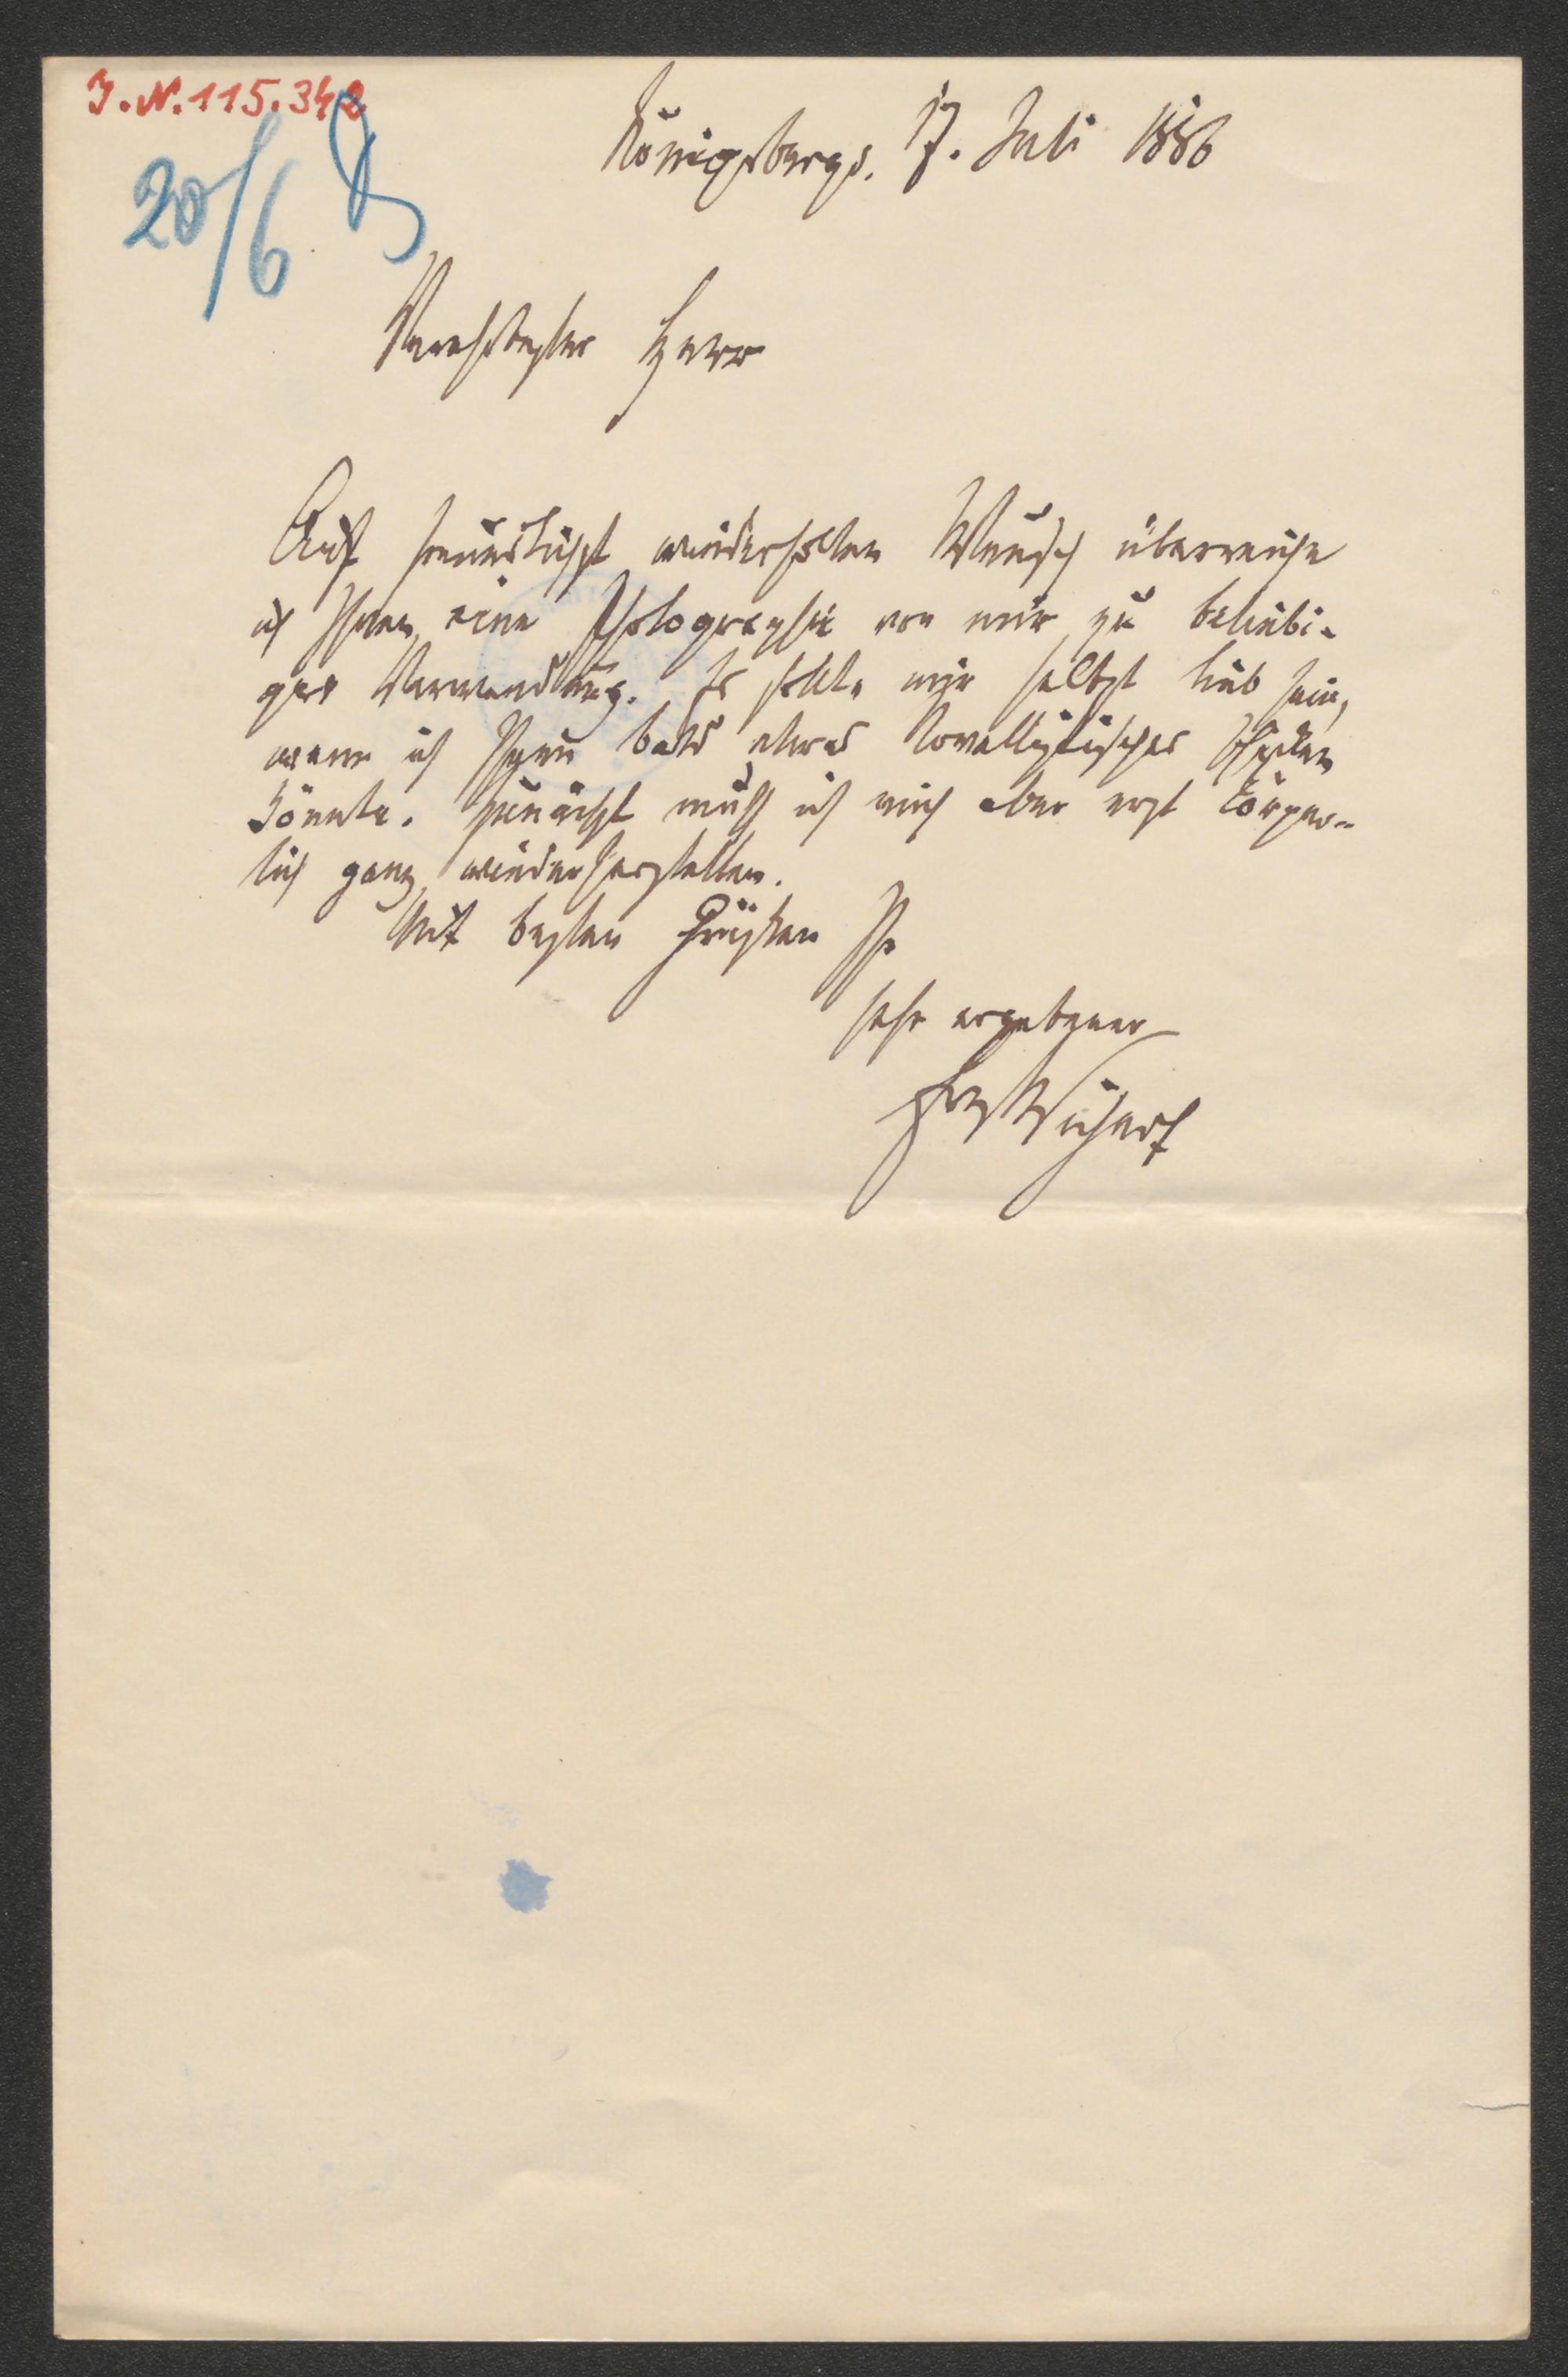 I.N. 115.342
20/6
Königsberg, 17. Juli 1886
Verehrtester Herr
Auf freundlichst wiederholten Wunsch überreiche
ich Ihnen eine Photographie von mir zu beliebi-
ger Verwendung. Es sollte mir selbst lieb sein,
wenn ich Ihnen bald etwas Novellistisches schicken
könnte. Zunächst muß ich mich aber erst körper-
lich ganz wiederherstellen.
Mit besten Grüßen Ihr
sehr ergebener
Ernst Wichert